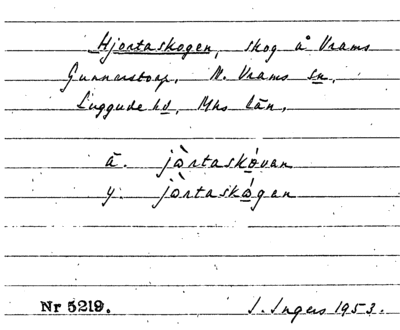 Hjortaskogen, skog å Vrams
Gunnarstorp, N. Vrams sn,
Luggude hd, Mhs län,
ä. jò̀rtaskóvan
y. jò̀rtaskógan
Nr 5219. I. Ingers 1953.